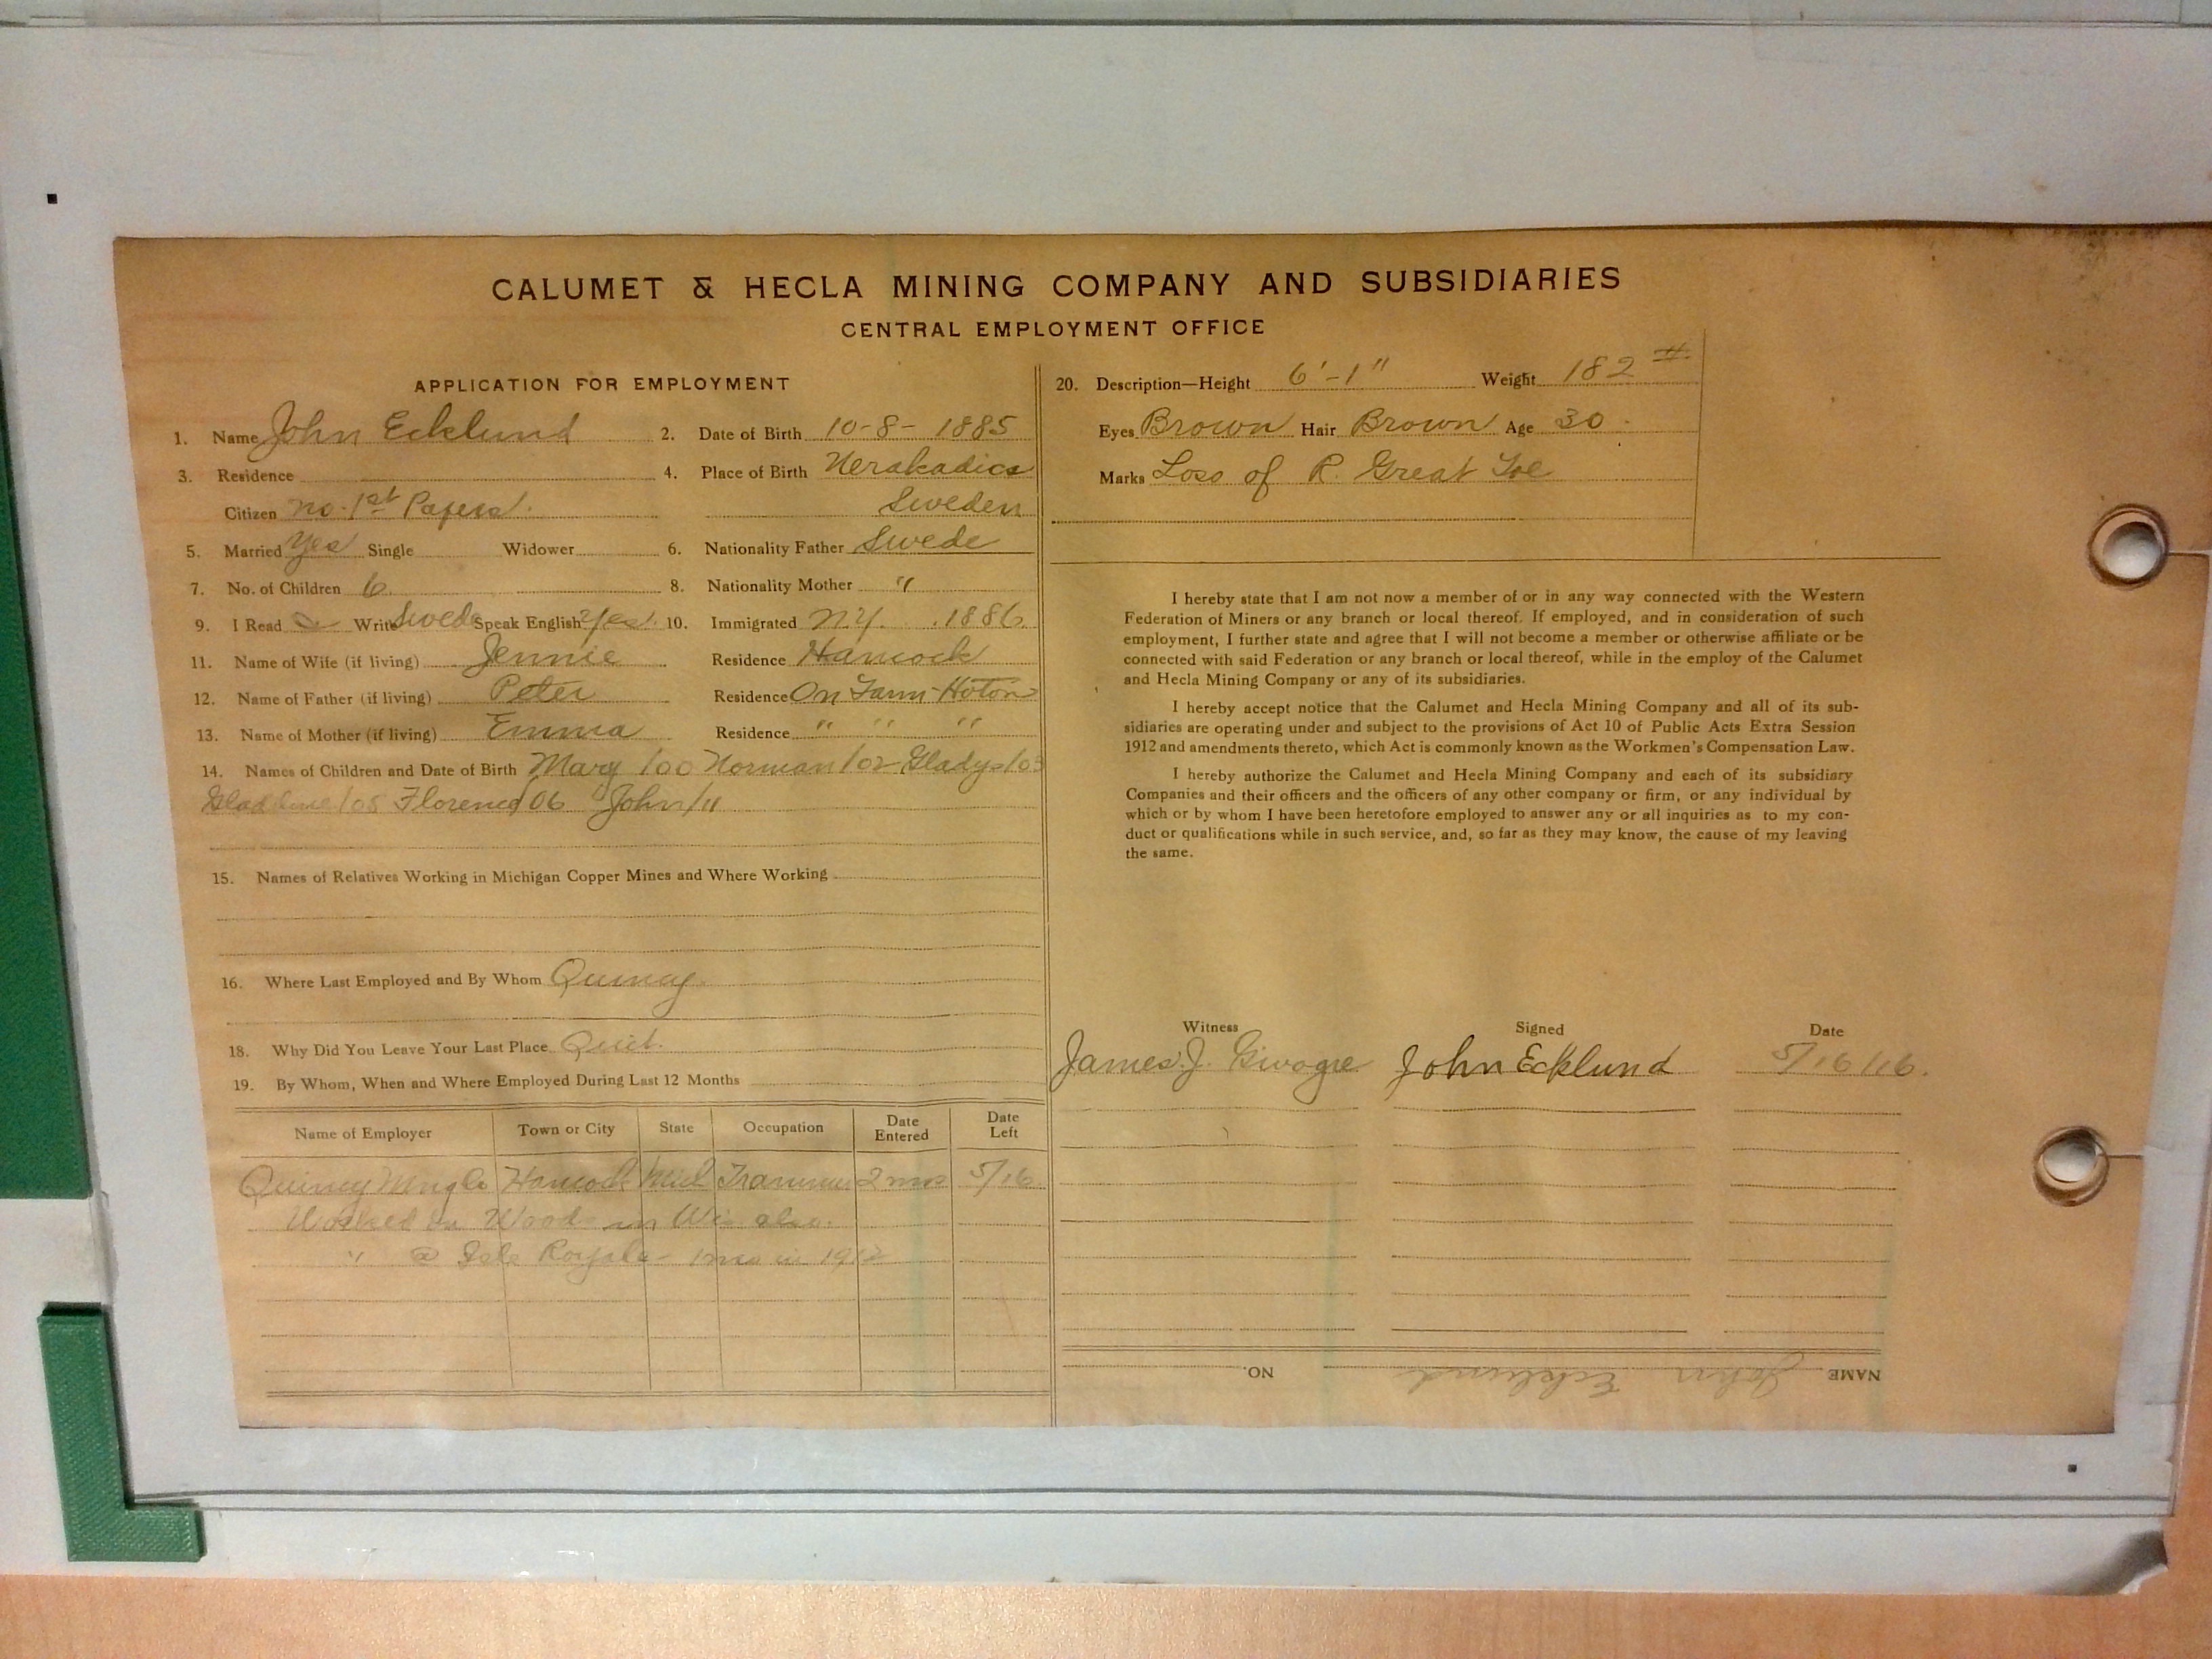 CALUMET & HECLA MINING COMPANY AND SUBSIDIARIES
CENTRAL EMPLOYMENT OFFICE
APPLICATION FOR EMPLOYMENT
1. Name John Ecklund 2. Date of Birth 10-8-1885
3. Residence 4. Place of Birth
Citizen no-1st Papers. Sweden
5. Married Yes Single Widower 6. Nationality Father Swede
7. No. of Children 6 8. Nationality Mother "
9. I Read Write Swede Speak English Yes. 10. Immigrated N.Y. 1886
11. Name of Wife (if living) Jennie Residence Hancock
12. Name of Father (if living) Peter Residence On Farm-Hoton
13. Name of Mother (if living) Emma Residence " " "
14. Names of Children and Date of Birth Mary /00 Norman /02 Gladys /03
/05 Florence /06 John /11
15. Names of Relatives Working in Michigan Copper Mines and Where Working
16. Where Last Employed and By Whom Quincy
18. Why Did You Leave Your Last Place Quiet.
19. By Whom, When and Where Employed During Last 12 Months
Name of Employer Town or City State Occupation Date Entered Date Left
Quincy Hancock Mich 2 mos 5/16
Worked in Woods in Wis also.
" @ Isle Royale 1 mo in 1912
20. Description—Height 6'-1" Weight 182 #
Eyes Brown Hair Brown Age 30
Marks Loss of R. Great Toe
I hereby state that I am not now a member of or in any way connected with the Western
Federation of Miners or any branch or local thereof. If employed, and in consideration of such
employment, I further state and agree that I will not become a member or otherwise affiliate or be
connected with said Federation or any branch or local thereof, while in the employ of the Calumet
and Hecla Mining Company or any of its subsidiaries.
I hereby accept notice that the Calumet and Hecla Mining Company and all of its sub-
sidiaries are operating under and subject to the provisions of Act 10 of Public Acts Extra Session
1912 and amendments thereto, which Act is commonly known as the Workmen's Compensation Law.
I hereby authorize the Calumet and Hecla Mining Company and each of its subsidiary
Companies and their officers and the officers of any other company or firm, or any individual by
which or by whom I have been heretofore employed to answer any or all inquiries as to my con-
duct or qualifications while in such service, and, so far as they may know, the cause of my leaving
the same.
Witness Signed Date
James J. John Ecklund 5/16/16.
NAME John Ecklund NO.